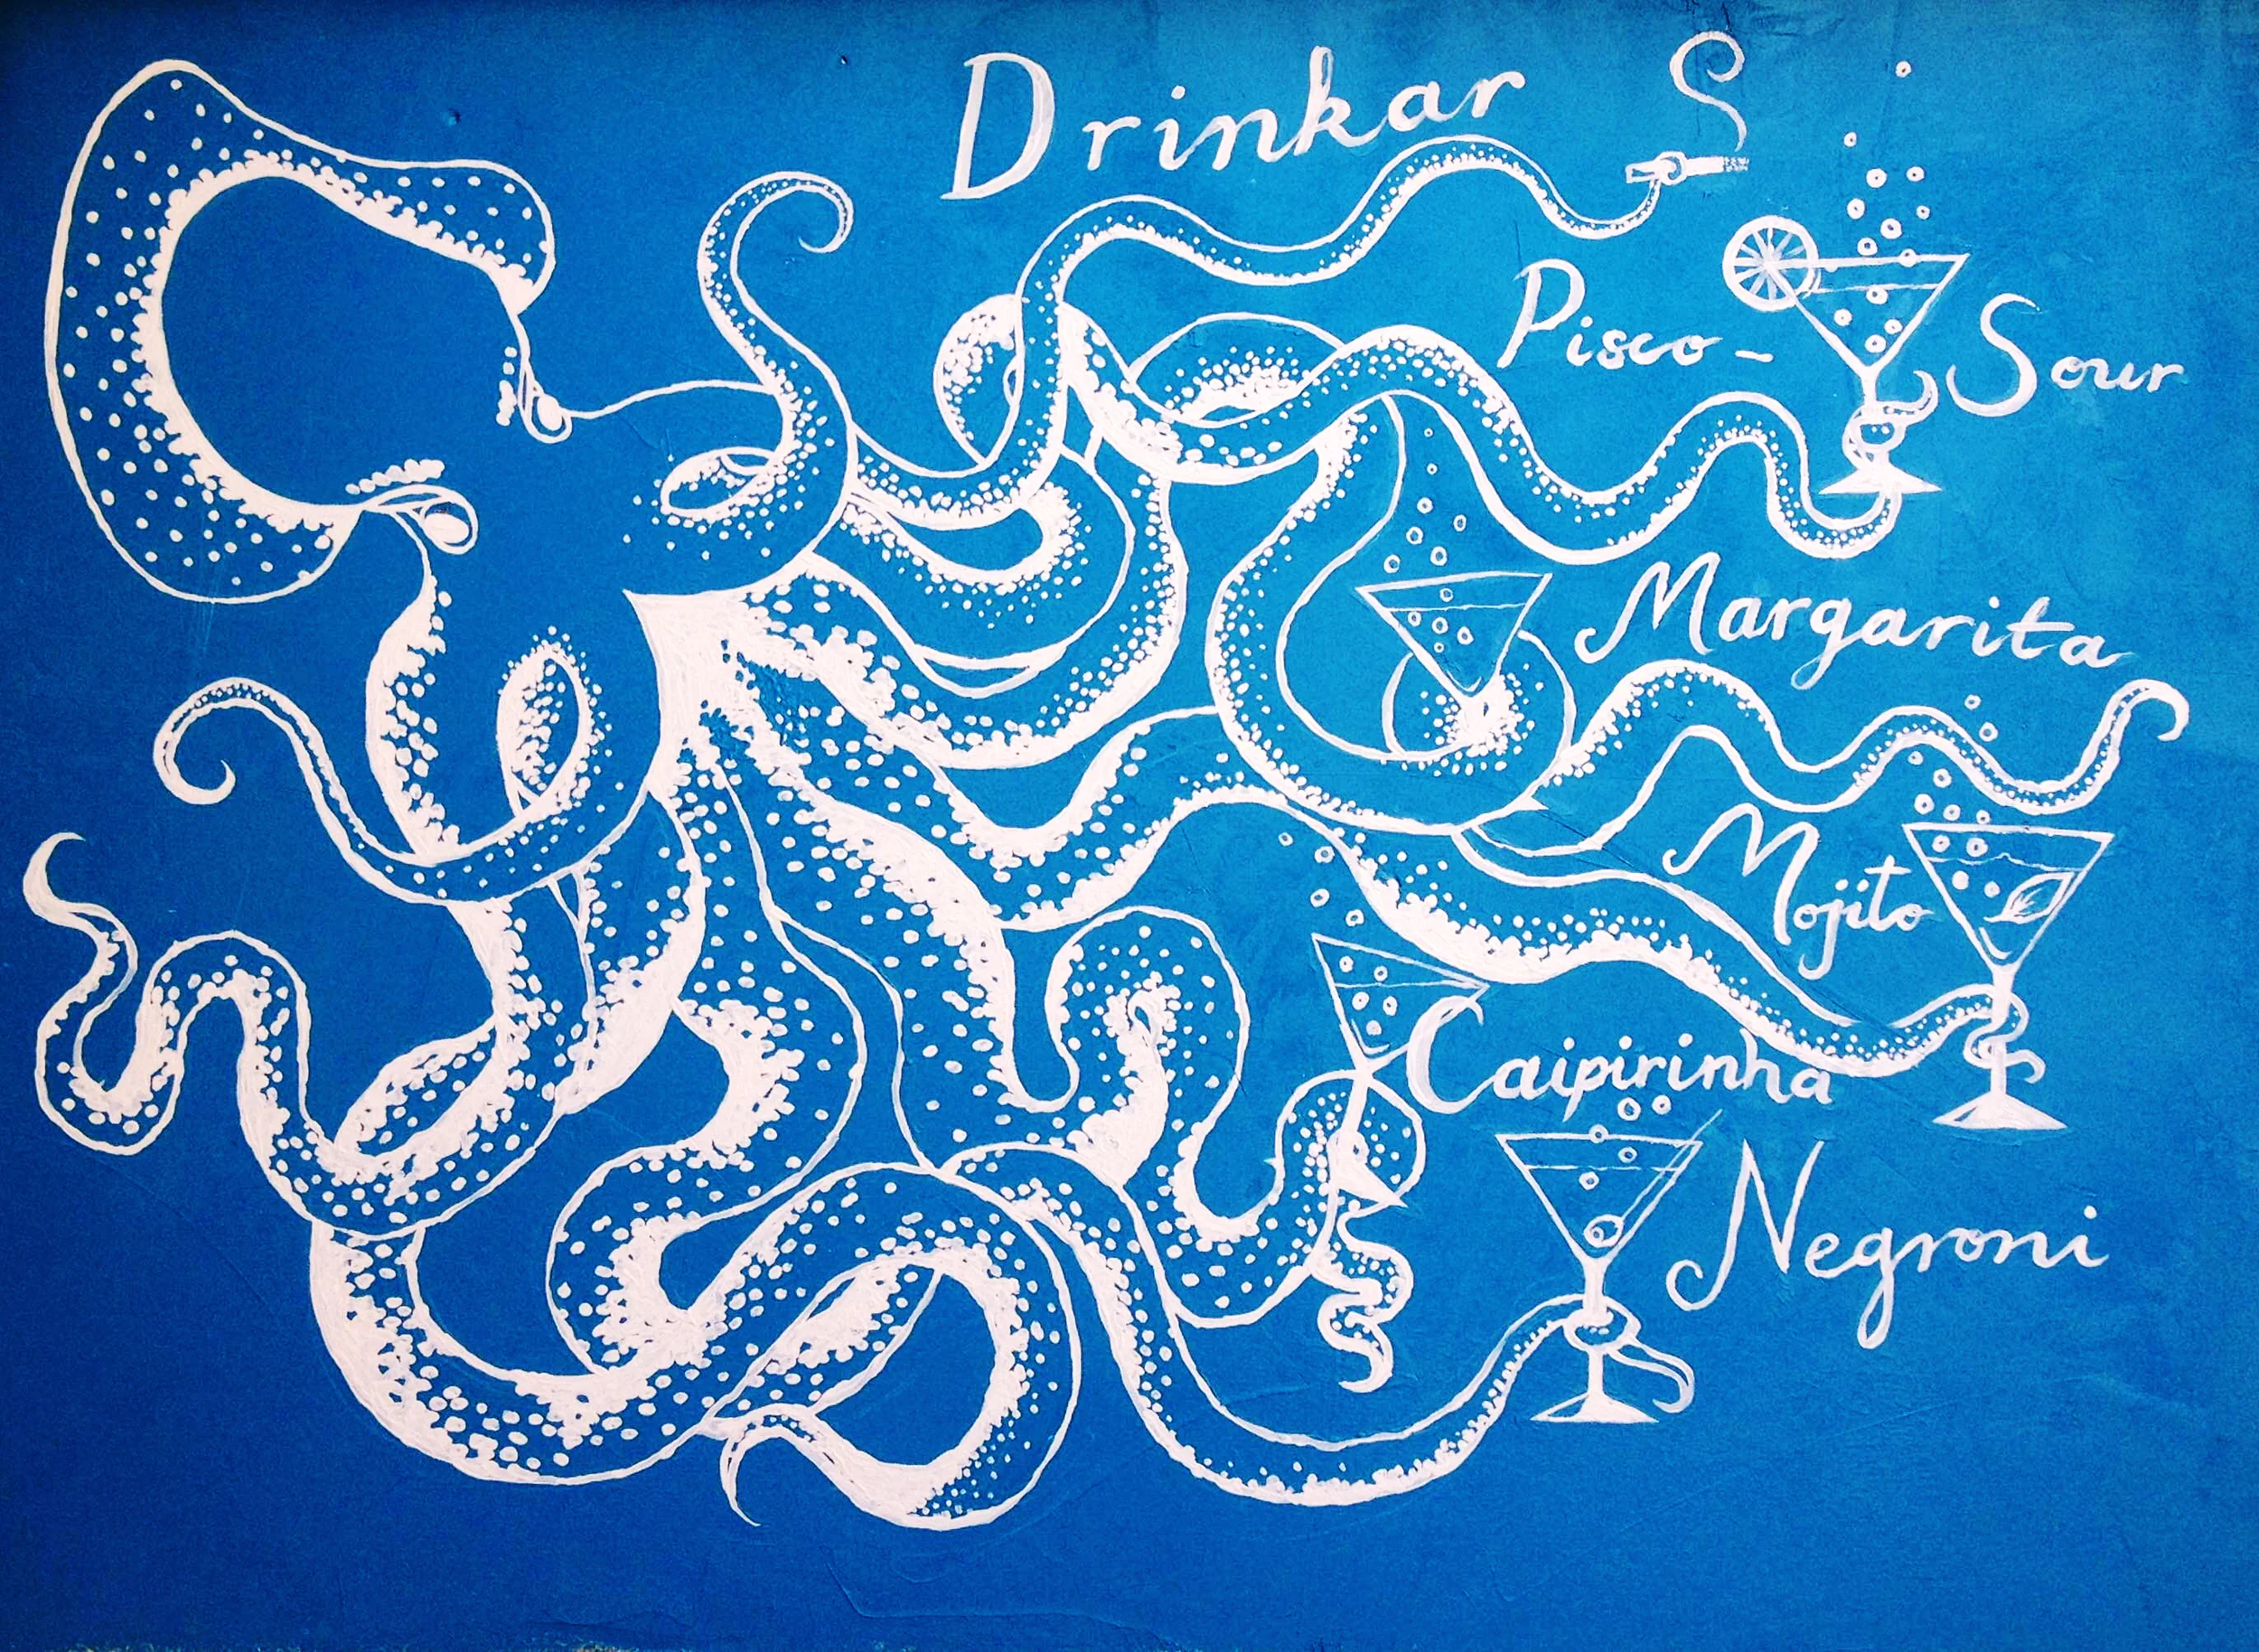 Drinkar
Pisco-Sour
Margarita
Mojito
Caipirinha
Negroni